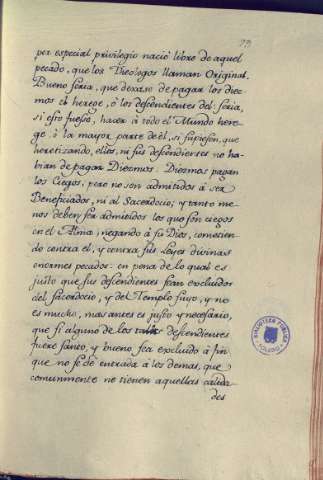 73
por especial privilegio nació libre de aquel
pecado, que los Theologos llaman Original.
Bueno seria, que dexaro de pagar los diez
mos el herege, ó los descendientes del: seria,
si esto fuesse, hacer à todo el Mundo here
ge ò la mayor parte de èl, si supiesen, que
heretizando, ellos, ni sus descendientes no ha
bian de pagar Diezmos. Diezmos pagan
los Ciegos, pero no son admitidos à ser
Beneficiados, ni al Sacerdocio; y tanto me
nos deben ser admitidos los que son ciegos
en el Alma, negando à su Dios, cometien
do contra el, y contra sus Leyes divinas
enormes pecados: en pena de lo qual es
justo que sus descendientes sean excluidos
del sacerdocio, y del Templo suyo, y no
es mucho, mas antes es justo y necesario,
que si alguno de los tales descendientes
fuere santo, y bueno sea excluido à fin
que no se de entrada à los demas, que
comunmente no tienen aquellas calida
des
BIBLIOTECA PUBLICA
TOLEDO